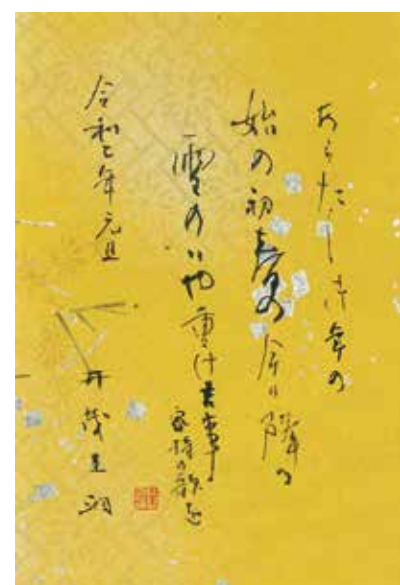 あらたしき年の
始の初春の今日降る
雪のいや重け吉事
家持の歌を
令和七年元旦
井茂圭洞